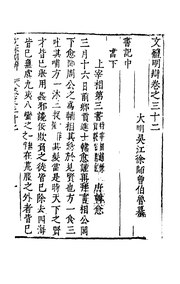 文體明辯卷之三十二
大明吳江徐師曾伯魯纂
書下
上宰相第三書 唐韓愈
三月十六日前鄉貢進士韓愈謹再拜言相公閣
下愈聞周公之為輔相其急於見賢也方一食三
吐其哺方一沐三捉其髮當是時天下之賢
才皆已舉用姦邪讒佞欺負之徒皆已除去四海
皆已無虞九夷八蠻之在荒服之外者皆已